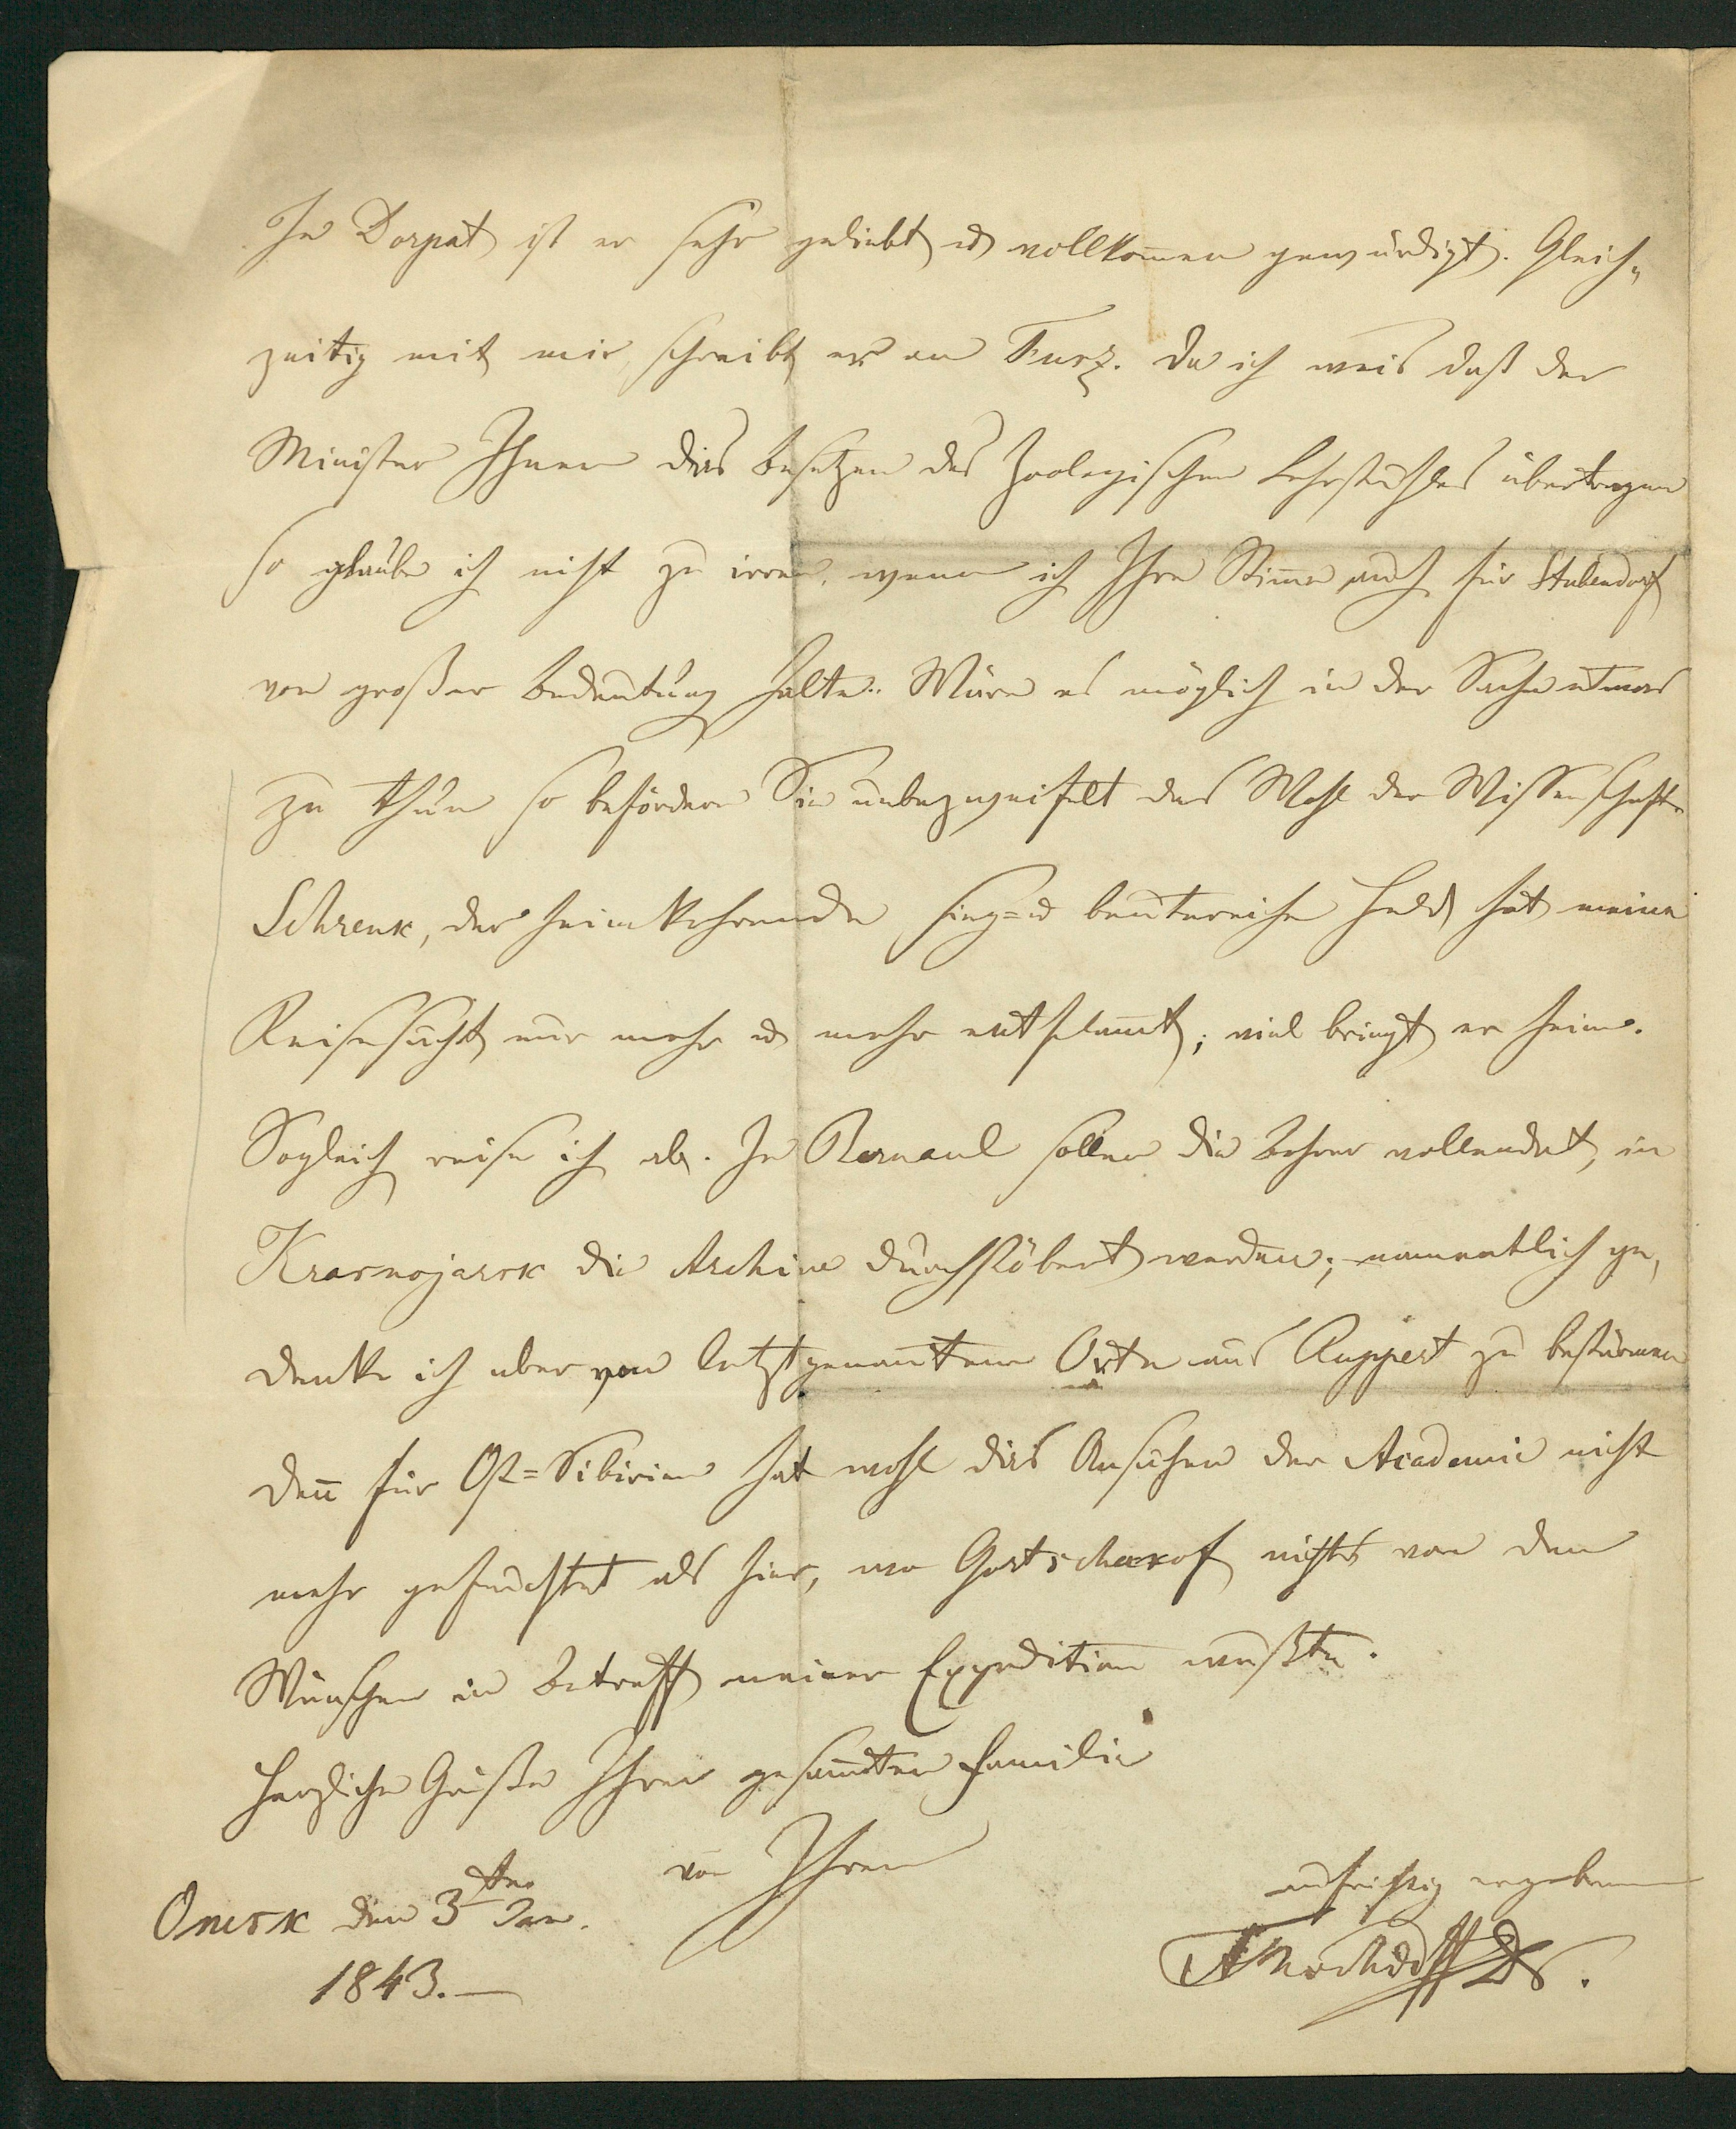 In Dorpat ist er sehr geliebt u vollkom̄en gewürdigt. Gleich„
zeitig mit mir schreibt er an Furz. Da ich weis daß der
Minister Ihnen dies Besetzen des Zoologischen Lehrstuhles übertragen
so glaube ich nicht zu irren, wenn ich Ihre Stim̄e auch für Stubendorf
von großer Bedeutung halte. Wäre es möglich in der Sache etwas
zu thun so befördern Sie unbezweifelt das Wohl der Wissenschaft.
Schrenk, der heimkehrende sieg= u beutereiche Held hat meine
Reisesucht nur mehr u mehr entflam̄t; viel bringt er heim.
Sogleich reise ich ab. In Barnaul sollen die Bohrer vollendet, in
Krasnojarsk die Archive durchstöbert werden; namentlich ge„
denke ich aber von letztgenan̄tem Orte aus Ruppert zu bestürmen
den̄ für Ost=Sibirien hat wohl dies Ansuchen der Academie nicht
mehr gefruchtet als hier, wo Gortschakof nichts von den
Wünschen in Betreff meiner Expedition wußte.
Herzliche Grüße Ihrer gesam̄ten Familie
von Ihrem
aufrichtig ergebenen
Omsk den 3ten Jan.
1843.—